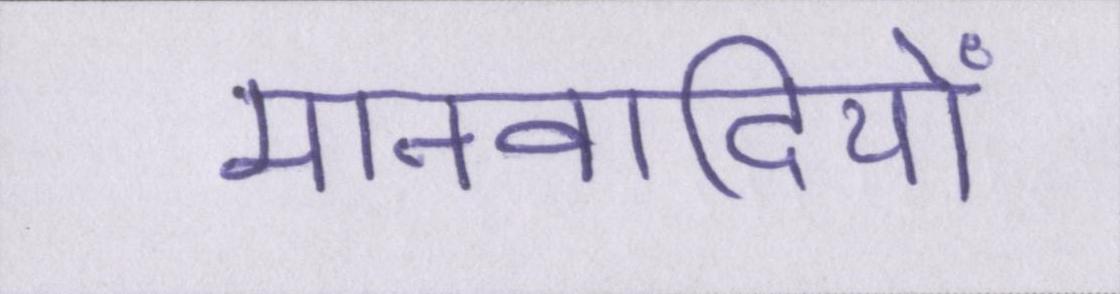 मानवादियों